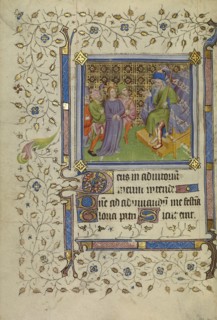 Deus in adiutoriū
meum intende
Dñe ad adiuuandū me festīa
Gloria patri Sicut erat.